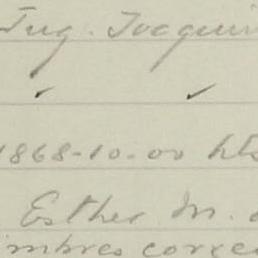 Ing. Joaquin
1868-10-00 hts
Esther M.
imbres corre